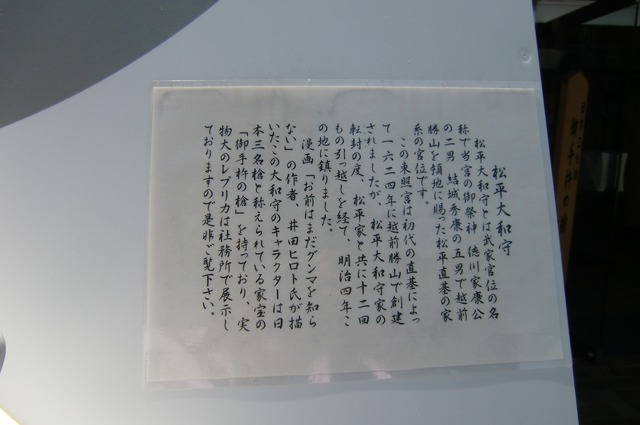 松平大和守
松平大和守とは武家官位の名
称で当宮の御祭神 徳川家康公
の二男 結城秀康の五男で越前
勝山を領地に賜った松平直基の家
系の官位です。
この東照宮は初代の直基によっ
て一六二四年に越前勝山で創建
されましたが、松平大和守家の
転封の度、松平家と共に十二回
もの引っ越しを経て、明治四年こ
の地に鎮りました。
漫画「お前はまだグンマを知ら
ない」の作者、井田ヒロト氏が描
いたこの大和守のキャラクターは日
本三名槍と称えられている家宝の
「御手杵の槍」を持っており、実
物大のレプリカは社務所で展示し
ておりますので是非ご覧下さい。
御手杵の槍